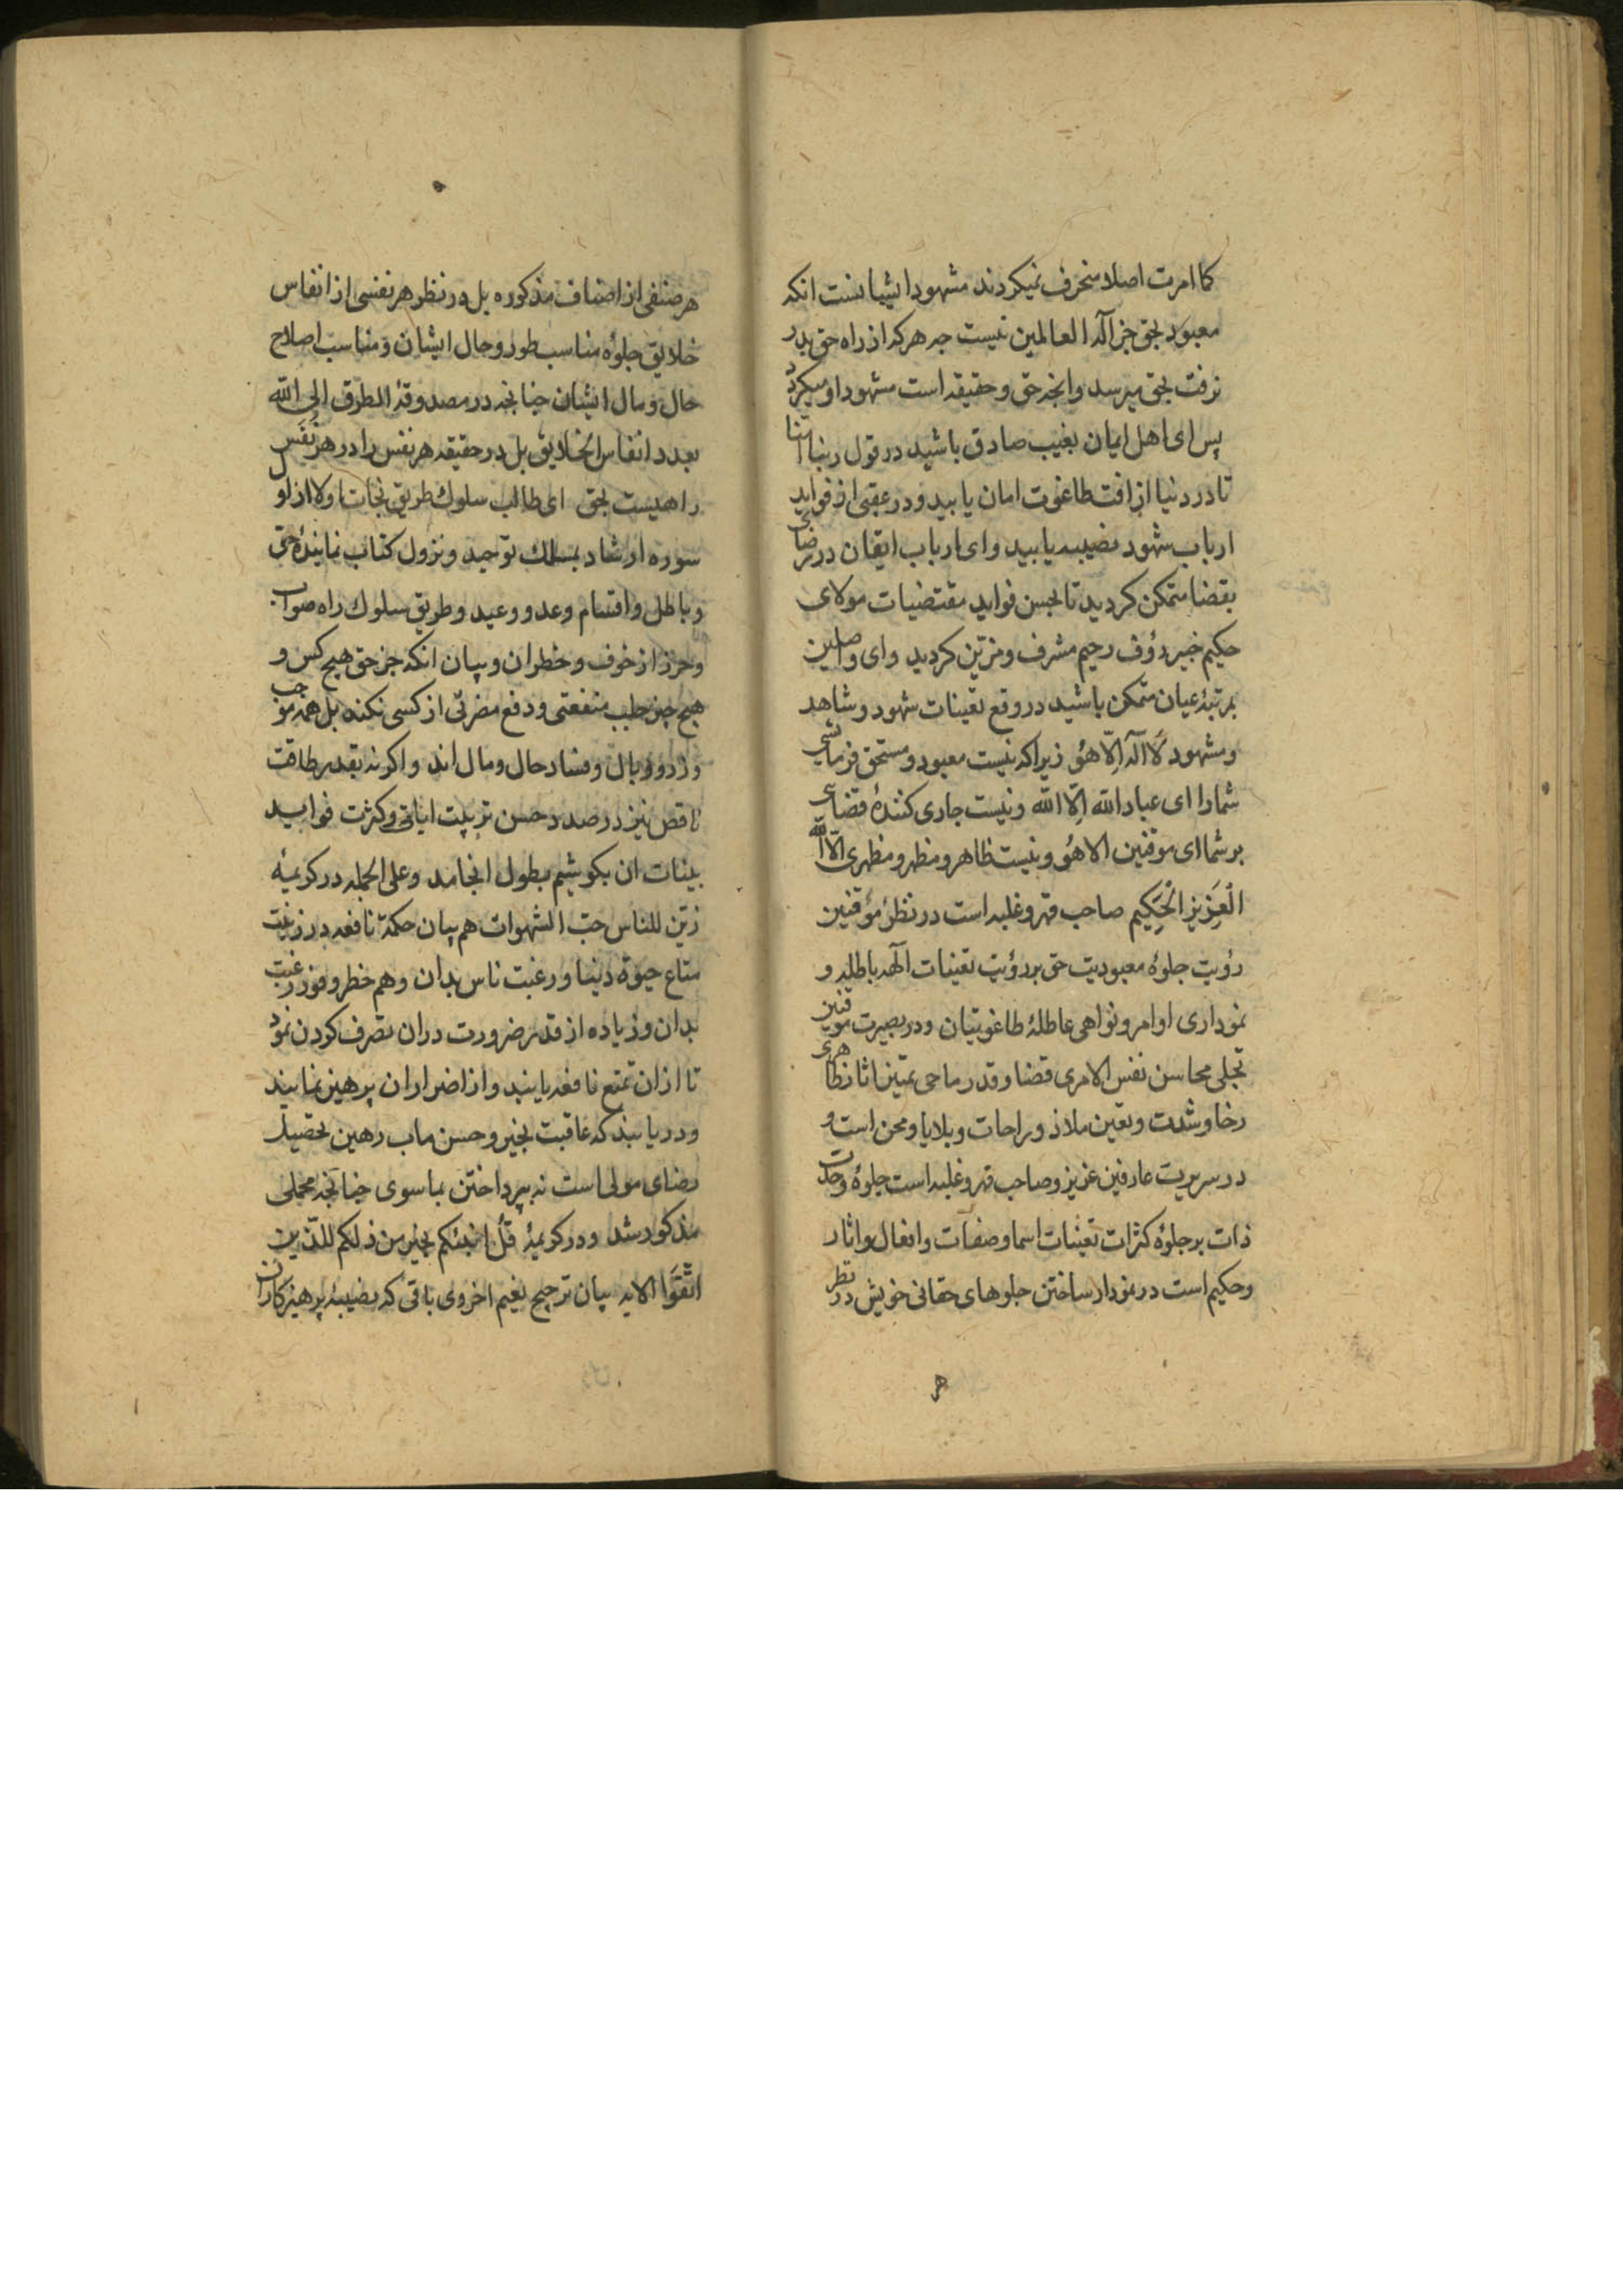 کما امرت اصلا منحرف نمیکردند مشهود ایشیا نست انکه
معبود بحق جز اله العالمین نیست چه هرکه از راه حق بدر
نرفت بحق میرسد و انچه حق و حقیقه است مشهود او میکردد
پس ای اهل ایمان بغیب صادق باشید در قول ربنا امنا
تا در دنیا از افت طاغوت امان یابید و در عقبی از فواید
ارباب شهود نصیبه یابید و ای ارباب ایقان در رضای
بقضا متمکن کردید تا بحسن فواید مقتضیات مولای
حکیم خبیر رؤف رحیم مشرف و مزتین کردید و ای واصلین
بمرتبهٔ عیان متمکن باشید در وقع تعینات شهود و شاهد
و مشهود لَا اله اِلّا هُو زیرا که نیست معبود و مستحق فرمانشی
شما را ای عباد الله اِلّا الله و نیست جاری کنندهٔ قضای
بر شما ای موقنین الا هُو و نیست ظاهر و مظهر و مظهری اِلّا الله
الْعَزِیز الْحَکِیم صاحب قهر و غلبه است در نظر مؤقنین
رؤیت جلوهٔ معبودیت حق بر رؤیت تعینات آلهه باطله و
نموداری اوامر و نواهی عاطلهٔ طاغوتیان و در بصیرت موقنین
تجلی محاسن نفس الامری قضا و قدر ماحی تمیز اثار ظاهری
رخا و شدت و تعین ملاذ و راحات و بلایا و محن است و
در سریت عارفین عزیز و صاحب قهر و غلبه است جلوهٔ وحدت
ذات بر جلوهٔ کثرات تعینات اسما و صفات و افعال و اثار
و حکیم است در نمودار ساختن جلوهای حقانی خویش در نظر
هر
هر صنفی از اصناف مذکوره بل در نظر هر نفسی از انفاس
خلایق جلوهٔ مناسب طور و حال ایشان و مناسب اصلاح
حال و مال ایشان چنانچه در مصدوقهٔ الطرق الی الله
بعدد انفاس الخلایق بل در حقیقه هر نفس را در هر نَفَس
راهیست بحق ای طالب سلوک طریق نجات اولا از اول
سوره ارشاد بمسلک توحید و نزول کتاب نمایندهٔ حق
و باطل و اقسام وعد و وعید و طریق سلوک راه صواب
و حرز از خوف و خطر ان و بیان انکه جز حق هیچ کس و
هیچ چیز جلب منفعتی و دفع مضرتی از کسی نکند بل همه موجب
وزر و وبال و فساد حال و مال اند و اکرنه بقدر طاقت
ناقص نیز در صدد حسن ترتیب ایاتی و کثرت فواید
بینات ان بکوشیم بطول انجامد و علی الجمله در کریمهٔ
زیّن للناس حبّ الشهوات هم بیان حکمة نافعه در زینت
متاع حیوة دنیا و رغبت ناس بدان و هم خطر وفور رغبت
بدان و زیاده از قدر ضرورت دران تصرف کردن نمود
تا ازان تمتع نافعه یابند و از اضرار ان پرهیز نمایند
و دریابند که عاقبت بخیر و حسن ماب رهین تحصیل
رضای مولی است نه بپرداختن بماسوی چنانچه مجملی
مذکور شد و در کریمهٔ قُلْ اؤنبئکم بخیر من ذلکم للذین
اتَّقَوا الایه بیان ترجیح نعیم اخروی باقی که نصیبهٔ پرهیزکاران